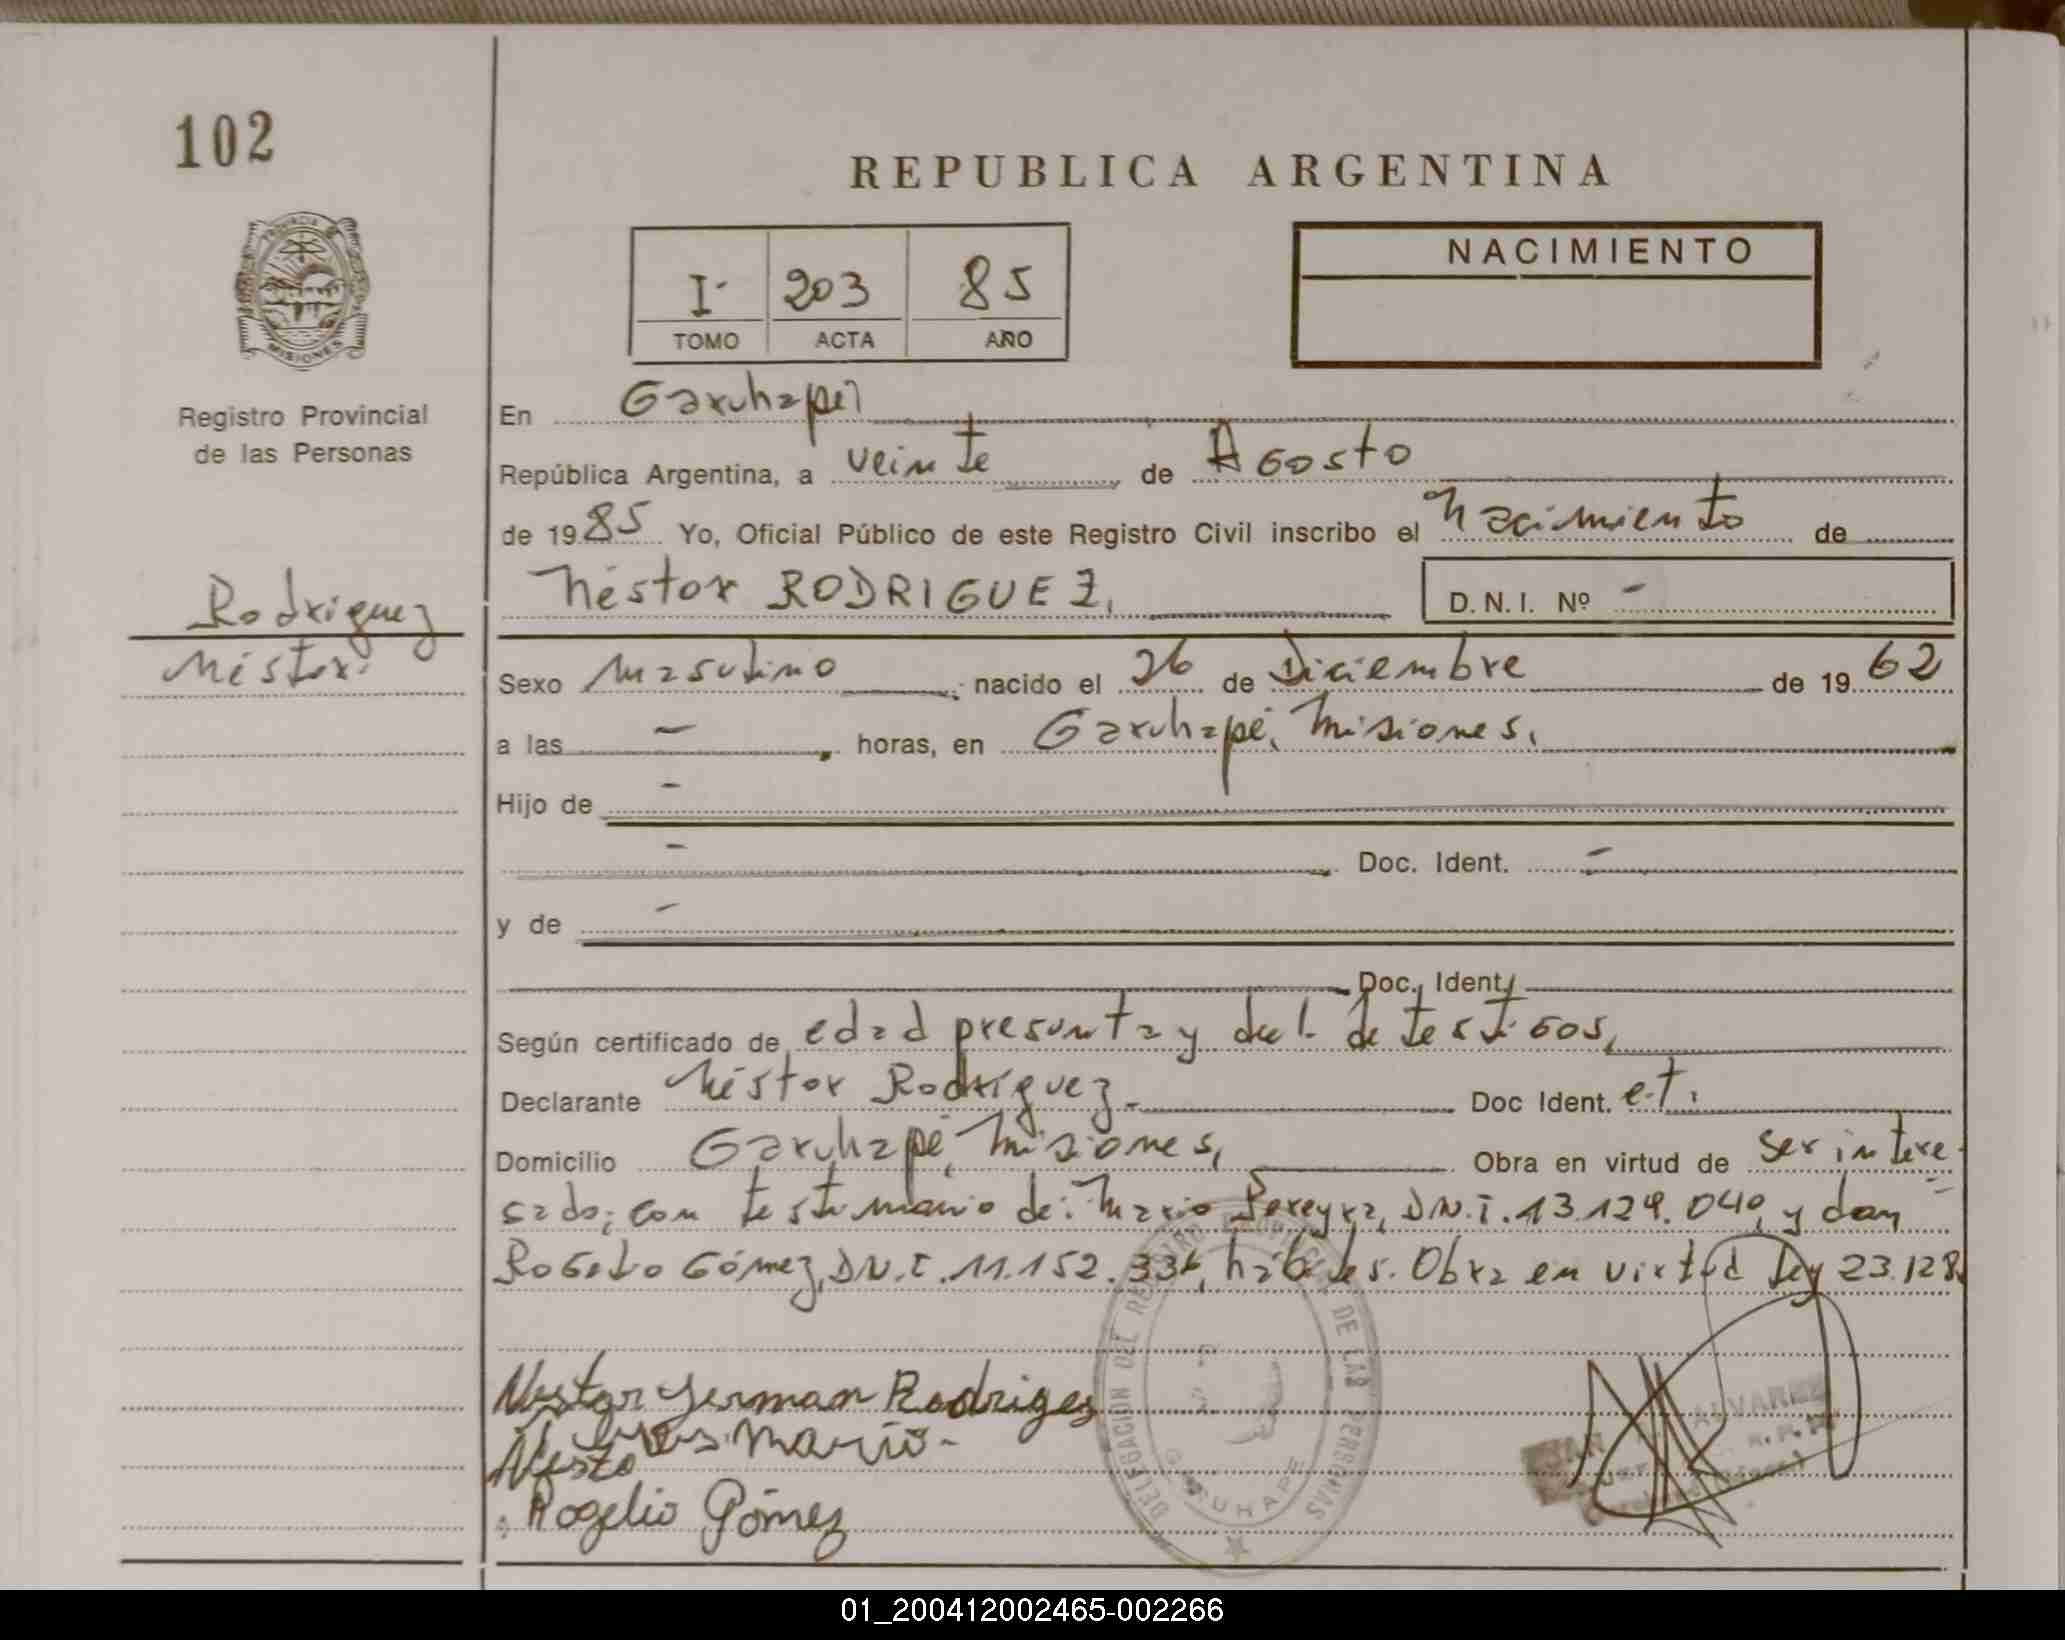 102
REPUBLICA ARGENTINA
PROVINCIA DE
MISIONES
I 203 85
TOMO ACTA AÑO
NACIMIENTO
Registro Provincial
de las Personas
En Garuhapé
República Argentina, a veinte de Agosto
de 1985 Yo, Oficial Público de este Registro Civil inscribo el Nacimiento de
Néstor RODRIGUEZ, D.N.I. Nº -
Rodriguez
Néstor.
Sexo Masculino ; nacido el 26 de Diciembre de 1962
a las - , horas, en Garuhapé, Misiones,
Hijo de -
- Doc. Ident. -
y de -
Doc. Ident.
Según certificado de edad presunta y decl. de testigos,
Declarante Néstor Rodríguez - Doc Ident. e.t.
Domicilio Garuhapé, Misiones, Obra en virtud de ser intere-
sado; con testimonio de: Mario Pereyra, D.N.I. 13.129.040, y don
Rogelio Gómez, D.N.I. 11.152.336, hábiles. Obra en virtud Ley 23.128
Nestor German Rodriges
Mario-
Nesto
Rogelio Gómez
DELEGACION DEL REGISTRO PROVINCIAL DE LAS PERSONAS
GARUHAPE
ALVAREZ
01_200412002465-002266